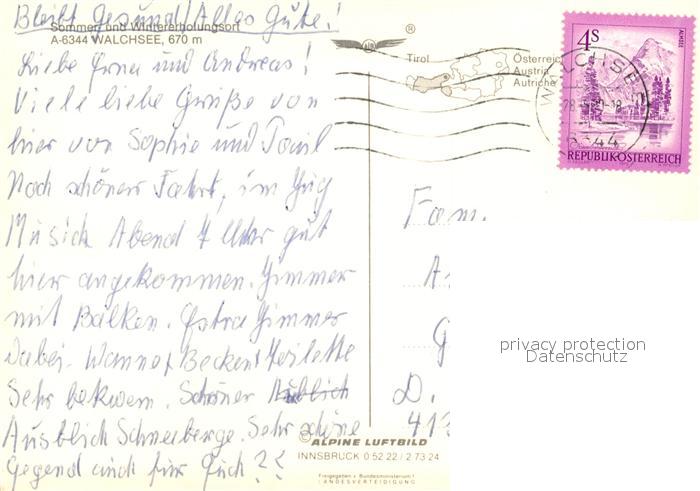 Bleibt Gesund! Alles Gute!
Sommer- und Wintererholungsort
A-6344 WALCHSEE, 670 m
®
Tirol
Österreich
Austria
Autriche
4S
ALMSEE
REPUBLIK ÖSTERREICH
WALCHSEE
6344
Liebe Erna und Andreas!
Viele liebe Grüße von
hier von Sophie und
Nach schöner Fahrt, im Zug
Musick Abend 7 Uhr gut
hier angekommen. Zimmer
mit Balken. Extra Zimmer
Dabei Wanne + Becken + Toilette
Sehr bekwem. Schöner
Ausblick Schneeberge. Sehr schöne
Gegend auch für Euch??
Fam.
A
G
D.
413
privacy protection
Datenschutz
© ALPINE LUFTBILD
INNSBRUCK 0 52 22 / 2 73 24
Freigegeben v. Bundesministerium f.
LANDESVERTEIDIGUNG